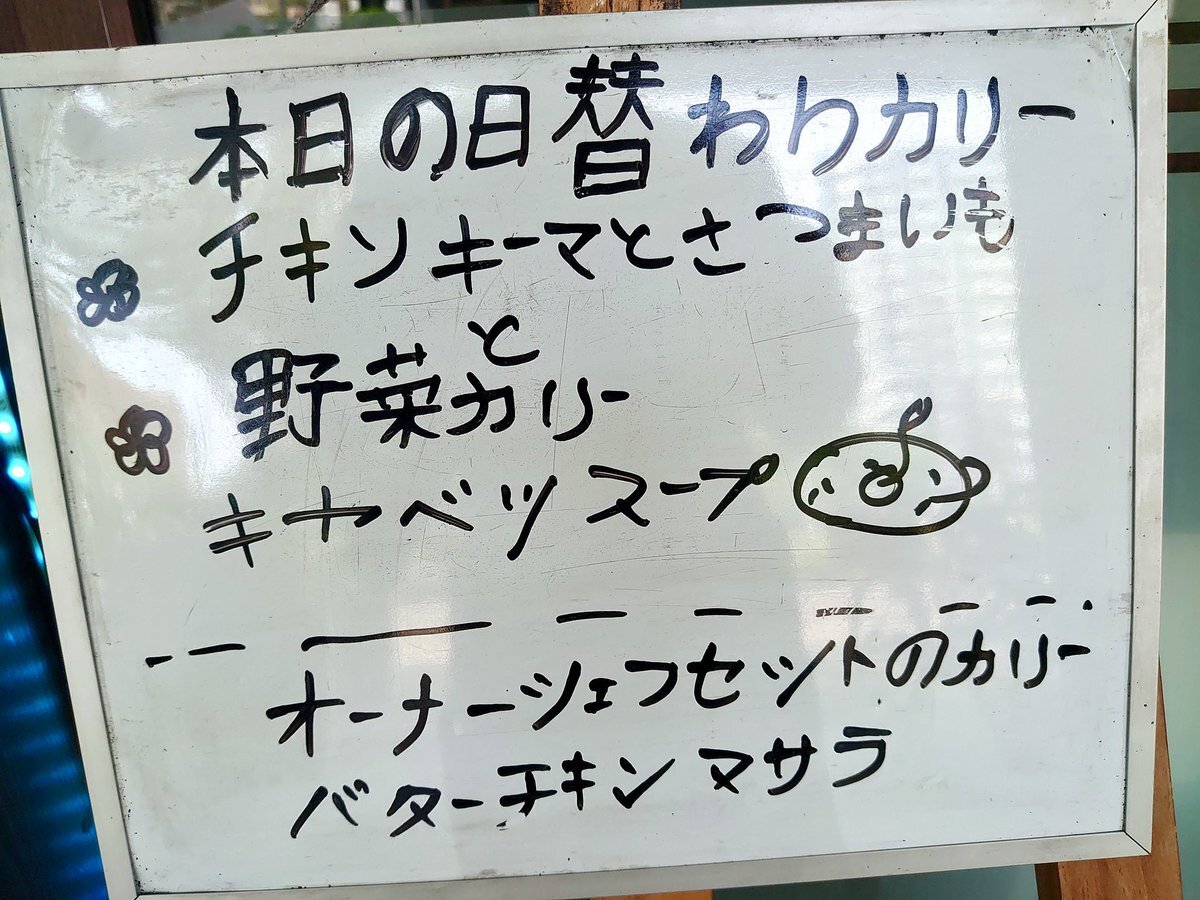 本日の日替わりカリー
チキンキーマとさつまいも
と
野菜カリー
キャベツスープ
オーナーシェフセットのカリー
バターチキンマサラ